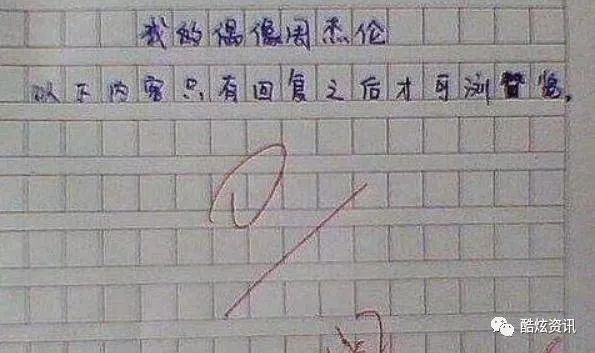 我的偶像周杰伦
以下内容只有回复之后才可浏览。
阅
酷炫资讯